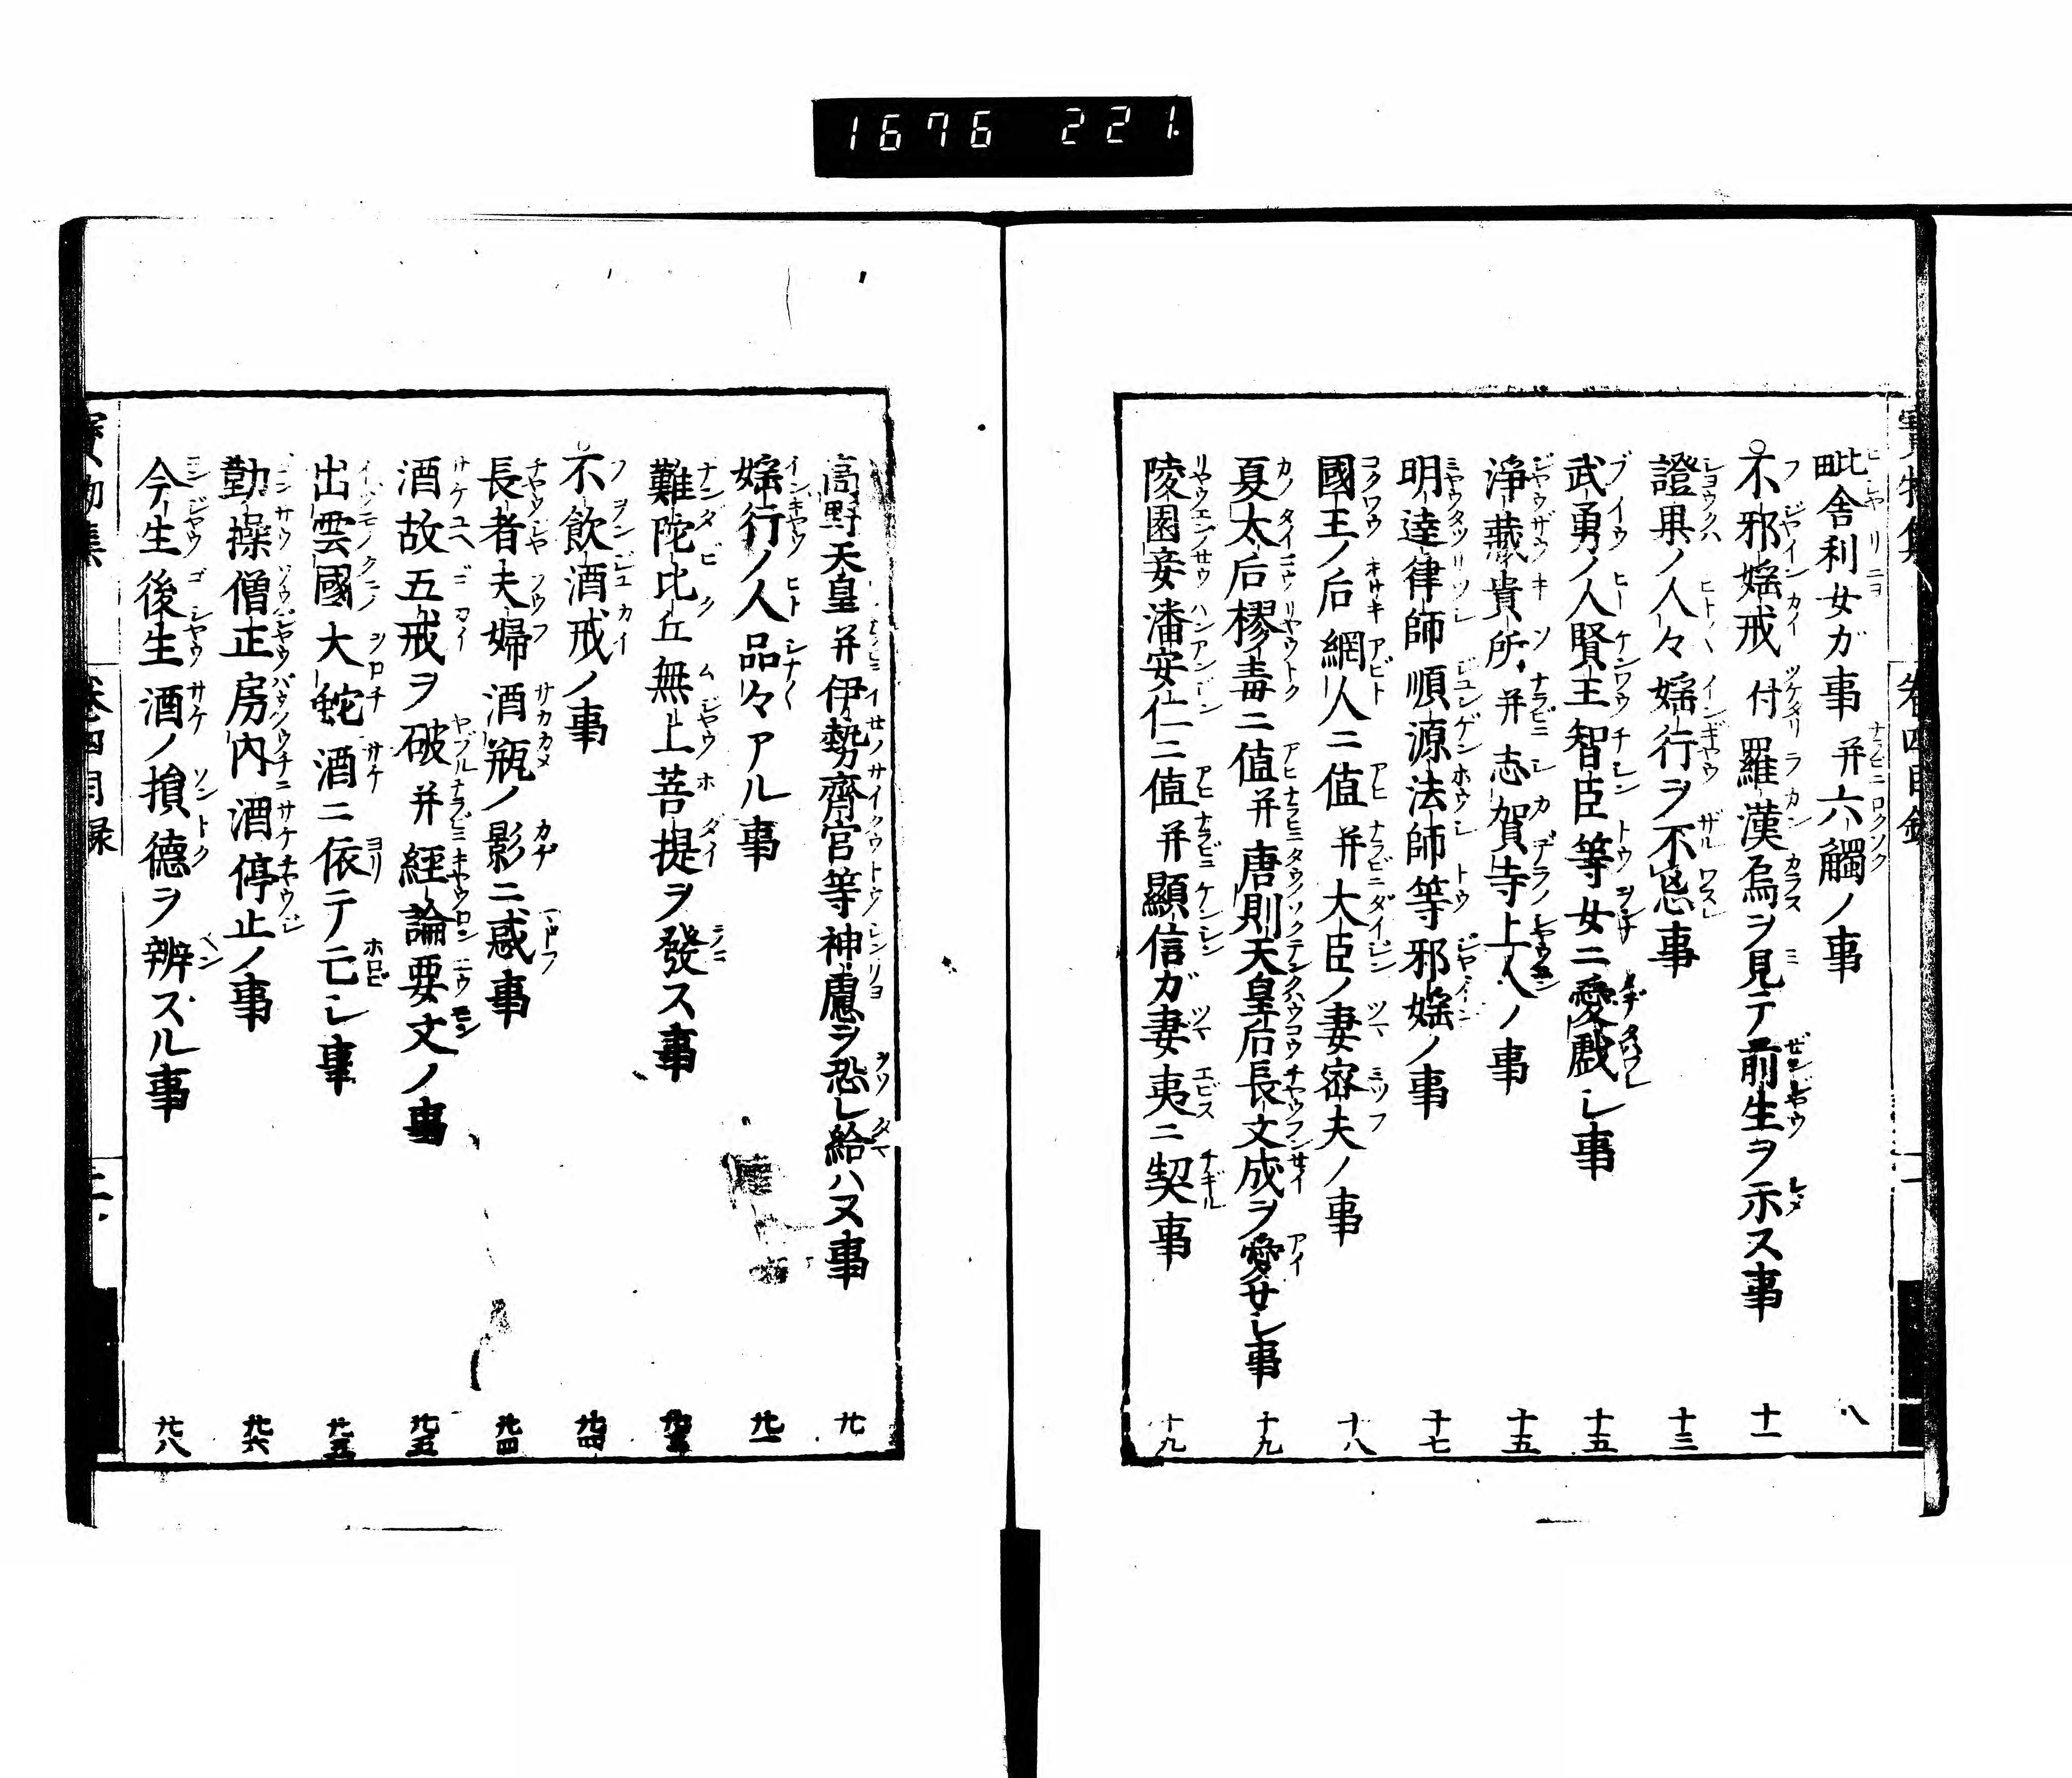 1676 221.
毗舎利女ガ事 并六觸ノ事 八
不邪婬戒 付羅漢烏ヲ見テ前生ヲ示ス事 十一
證果ノ人々婬行ヲ不忘事 十三
武勇ノ人賢王智臣等女ニ愛戯シ事 十五
淨藏貴所并志賀寺上人ノ事 十五
明達律師順源法師等邪婬ノ事 十七
國王ノ后網人ニ値并大臣ノ妻密夫ノ事 十八
夏太后樛毒ニ値并唐則天皇后長文成ヲ愛せシ事 十九
陵園妾潘安仁ニ値并顯信ガ妻夷ニ契事 十九
高野天皇并伊勢齊宮等神慮ヲ恐レ給ハヌ事 廿
婬行ノ人品々アル事 廿一
難陀比丘無上菩提ヲ發ス事
不飲酒戒ノ事 廿四
長者夫婦酒瓶ノ影ニ惑事 廿四
酒故五戒ヲ破并經論要文ノ事 廿五
出雲國大蛇酒ニ依テ亡シ事 廿五
勤操僧正房内酒停止ノ事 廿六
今生後生酒ノ損德ヲ辨スル事 廿八